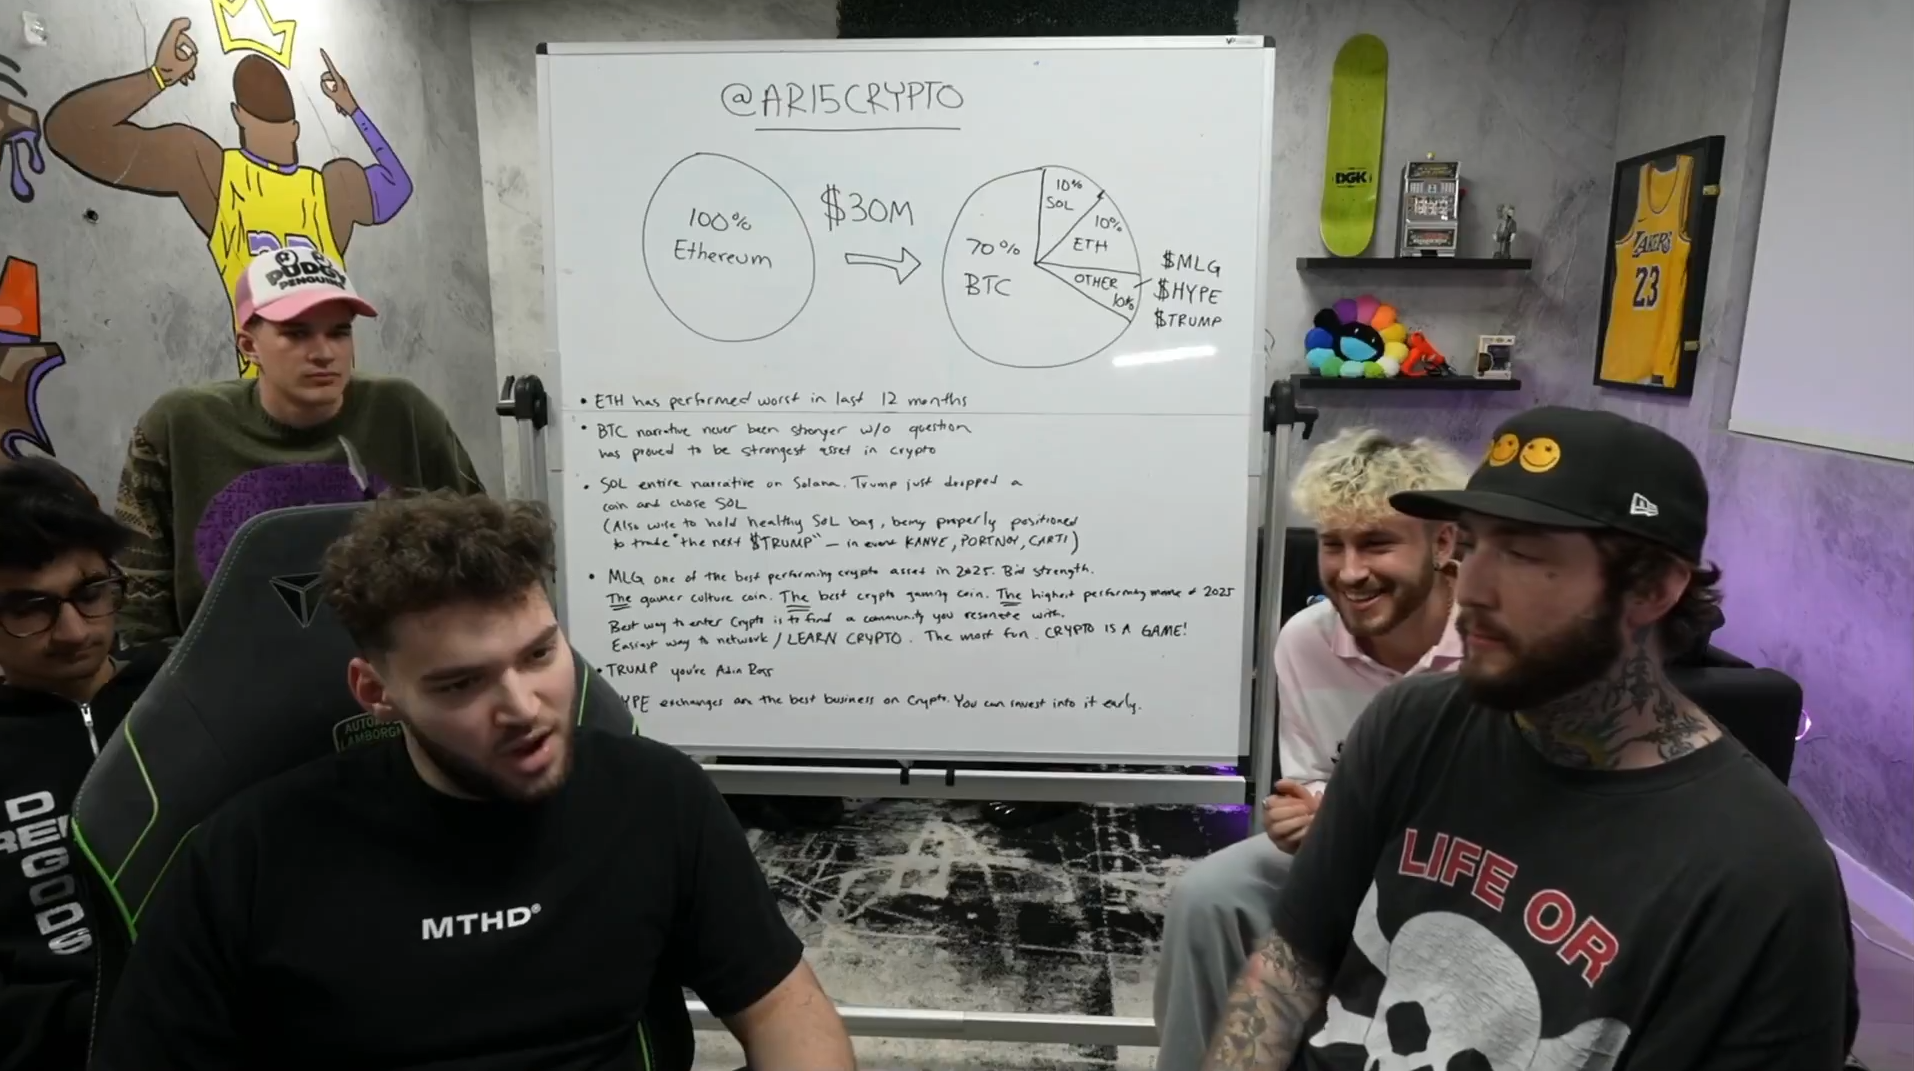 @AR15CRYPTO
100%
Ethereum
$30M
10%
SOL
10%
ETH
70%
BTC
OTHER
10%
$MLG
$HYPE
$TRUMP
• ETH has performed worst in last 12 months
• BTC narrative never been stronger w/o question
has proved to be strongest asset in crypto
• SOL entire narrative on Solana. Trump just dropped a
coin and chose SOL
(Also wise to hold healthy SOL bag, being properly positioned
to trade "the next $TRUMP" — in event KANYE, PORTNOY, CARTI)
• MLG one of the best performing crypto asset in 2025. Bid strength.
The gamer culture coin. The best crypto gaming coin. The highest performing meme of 2025
Best way to enter Crypto is to find a community you resonate with.
Easiest way to network / LEARN CRYPTO. The most fun. CRYPTO IS A GAME!
• TRUMP you're Adin Ross
YPE exchanges are the best business on Crypto. You can invest into it early.
PUDGY
PENGUINS
DGK
LAKERS
23
AUTOMOBILI
LAMBORGH
DE
GODS
MTHD®
LIFE OR